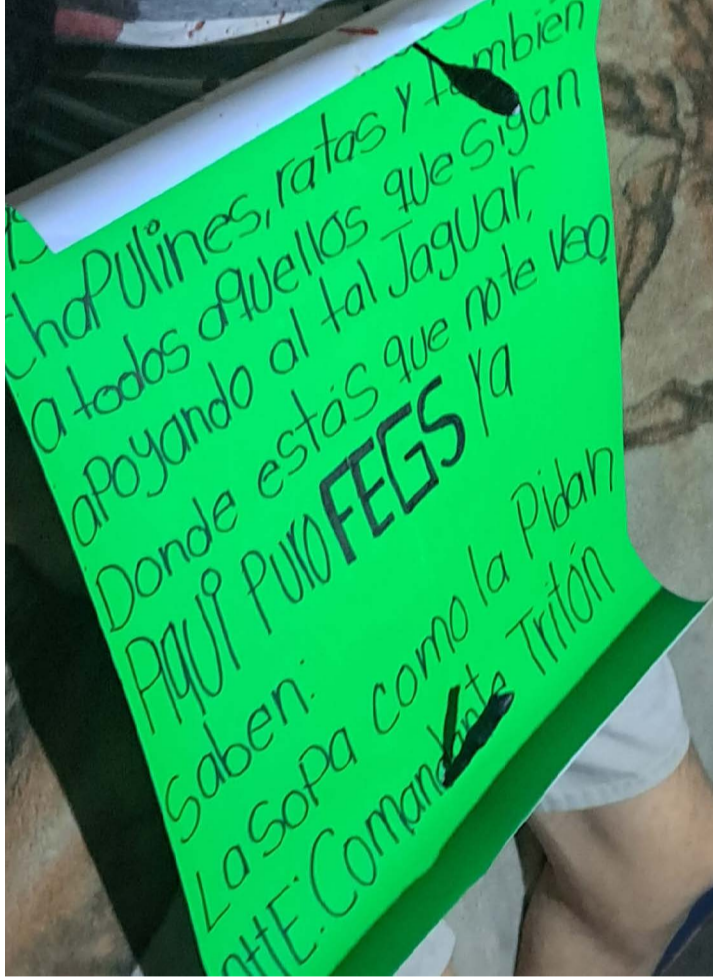 Chapulines, ratas y también
a todos aquellos que sigan
apoyando al tal Jaguar,
Donde estás que no te veo
AQUÍ PURO FEGS Ya
saben:
La sopa como la Pidan
ATTE: Comandante Tritón